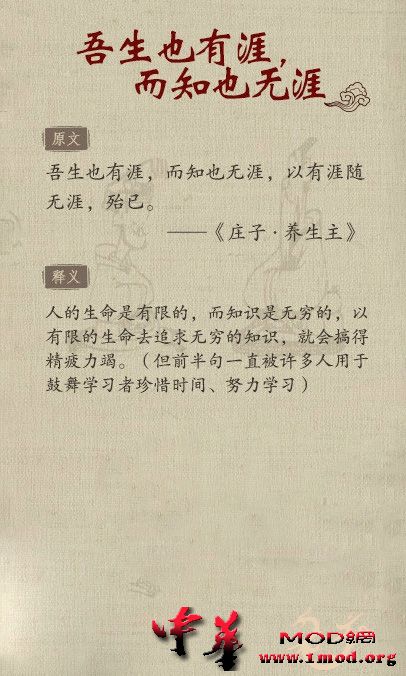 吾生也有涯，
而知也无涯
原文
吾生也有涯，而知也无涯，以有涯随
无涯，殆已。
——《庄子·养生主》
释义
人的生命是有限的，而知识是无穷的，以
有限的生命去追求无穷的知识，就会搞得
精疲力竭。（但前半句一直被许多人用于
鼓舞学习者珍惜时间、努力学习）
中华
MOD網
www.1mod.org